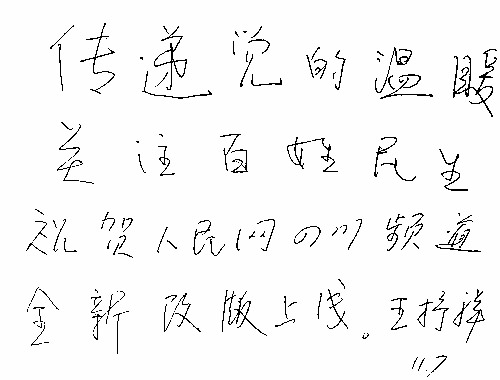 传递党的温暖
关注百姓民生
祝贺人民网四川频道
全新改版上线。王抒祥
11.7